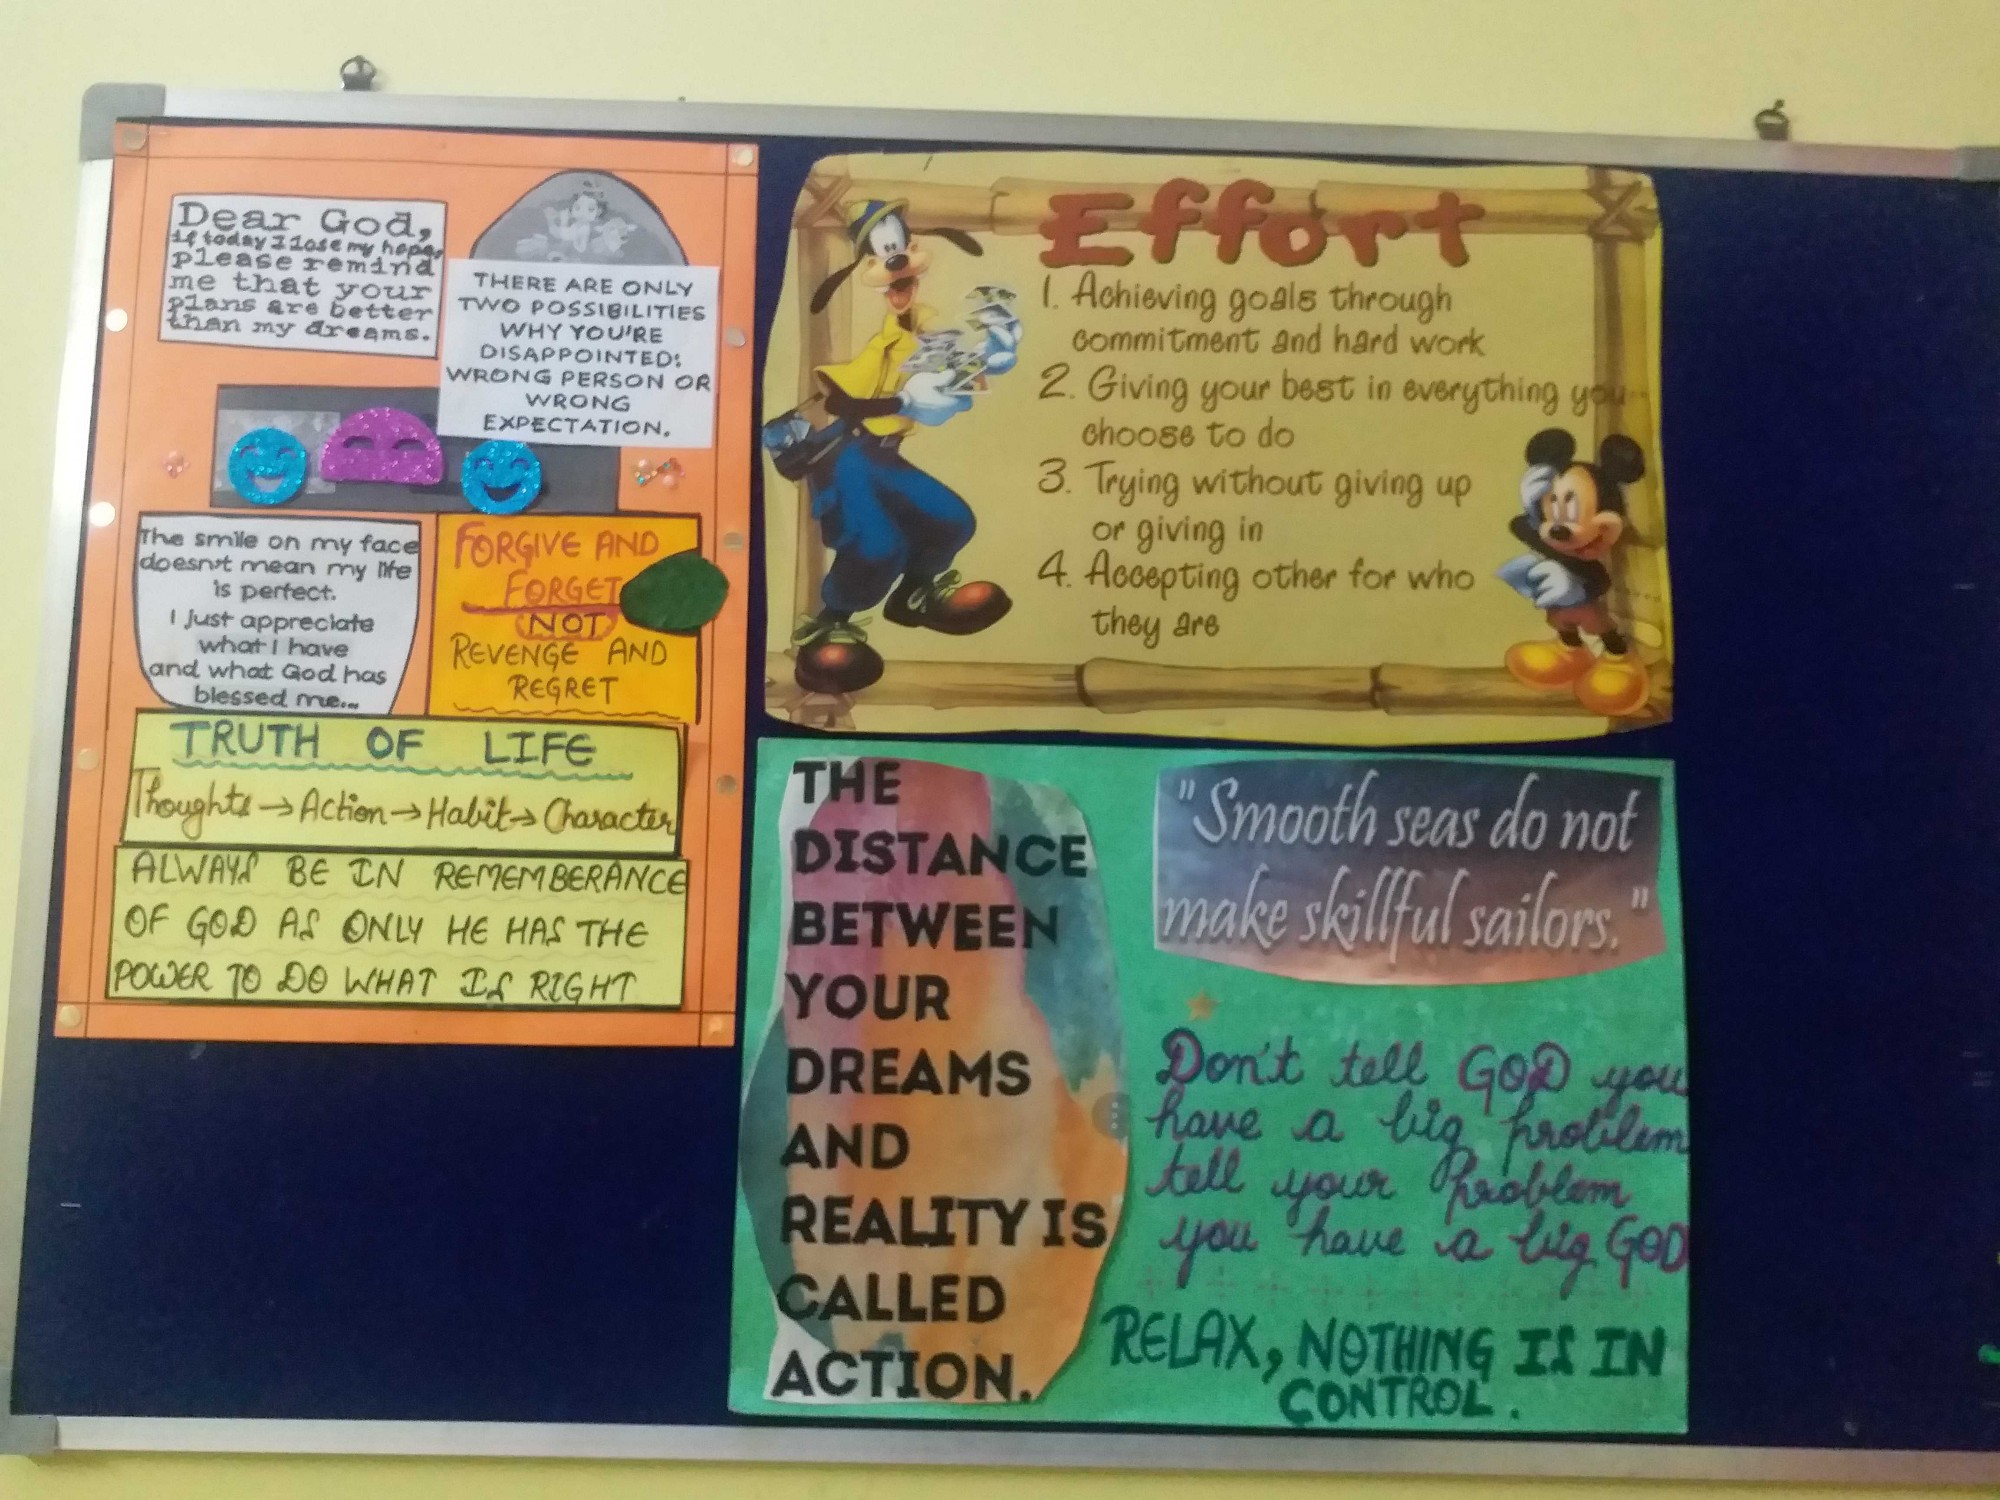 Dear God,
if today I lose my hope,
please remind
me that your
plans are better
than my dreams.
THERE ARE ONLY
TWO POSSIBILITIES
WHY YOU'RE
DISAPPOINTED:
WRONG PERSON OR
WRONG
EXPECTATION.
The smile on my face
doesn't mean my life
is perfect.
I just appreciate
what I have
and what God has
blessed me...
FORGIVE AND
FORGET
NOT
REVENGE AND
REGRET
TRUTH OF LIFE
Thoughts → Action → Habit → Character
ALWAYS BE IN REMEMBERANCE
OF GOD AS ONLY HE HAS THE
POWER TO DO WHAT IS RIGHT
Effort
1. Achieving goals through
commitment and hard work
2. Giving your best in everything you
choose to do
3. Trying without giving up
or giving in
4. Accepting other for who
they are
THE
DISTANCE
BETWEEN
YOUR
DREAMS
AND
REALITY IS
CALLED
ACTION.
"Smooth seas do not
make skillful sailors."
Don't tell GOD you
have a big problem
tell your problem
you have a big GOD
RELAX, NOTHING IS IN
CONTROL.